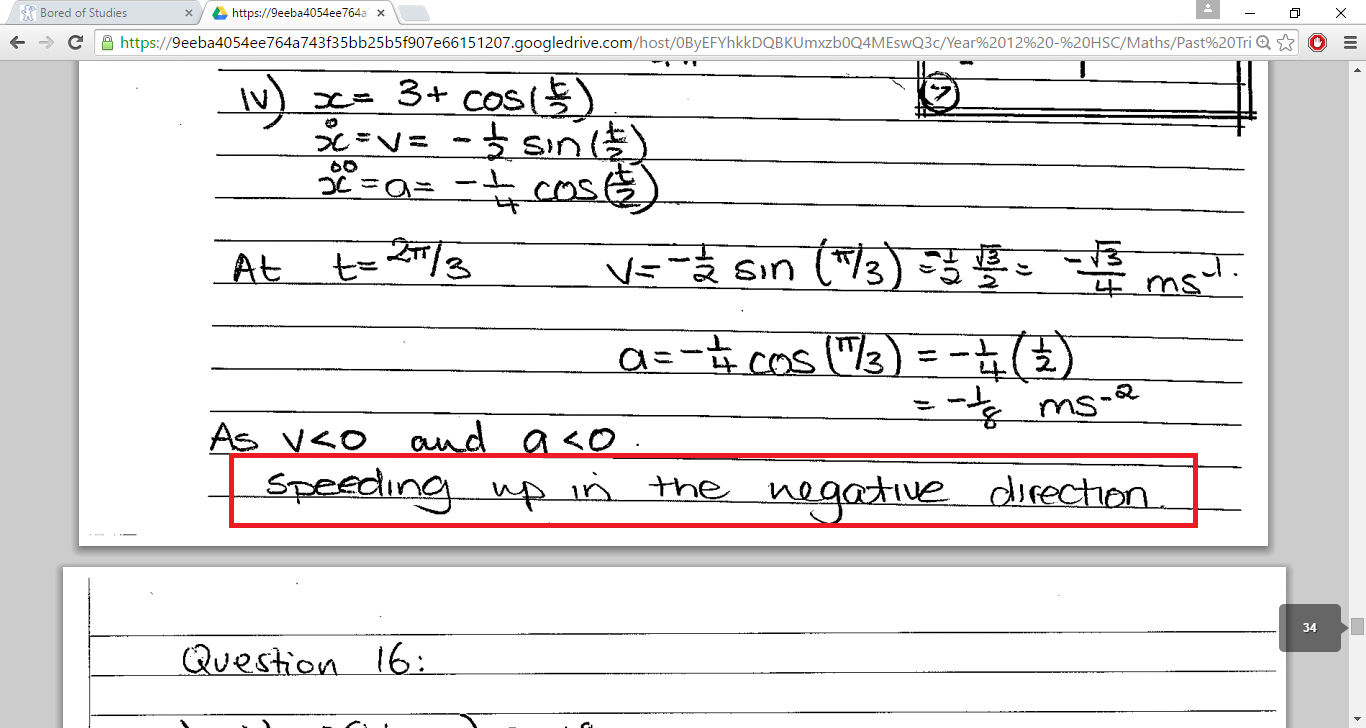 Bored of Studies
https://9eeba4054ee764a
https://9eeba4054ee764a743f35bb25b5f907e66151207.googledrive.com/host/0ByEFYhkkDQBKUmxzb0Q4MEswQ3c/Year%2012%20-%20HSC/Maths/Past%20Tri
iv) x = 3 + cos(t/2)
ẋ = v = -1/2 sin(t/2)
ẍ = a = -1/4 cos(t/2)
At t = 2π/3 v = -1/2 sin (π/3) = -1/2 √3/2 = -√3/4 ms⁻¹.
a = -1/4 cos (π/3) = -1/4 (1/2)
= -1/8 ms⁻²
As v<0 and a<0.
speeding up in the negative direction.
34
Question 16: